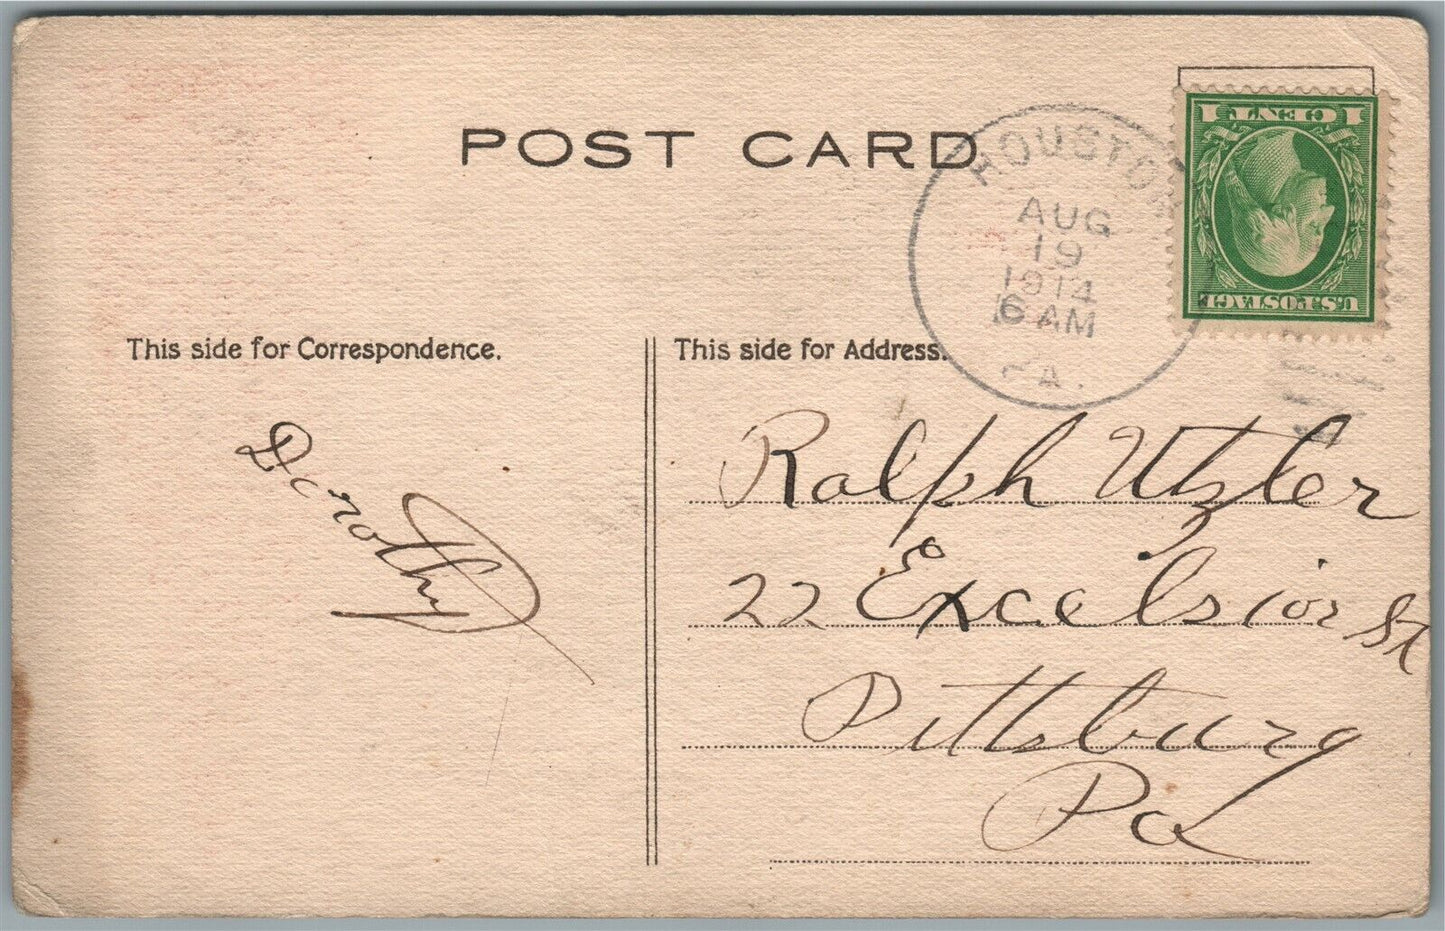 POST CARD
HOUSTON
AUG
19
1914
6 AM
PA.
1 CENT 1
U.S. POSTAGE
This side for Correspondence.
This side for Address.
Dorothy
Ralph Utzler
22 Excelsior St
Pittsburg
Pa